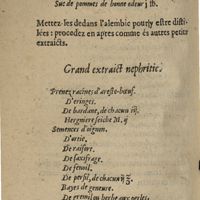 Suc de pommes de bonne odeur j ℔.
Mettez-les dedans l'alembic pour y estre distil-
lées : procedez en apres comme és autres petits
extraicts.
Grand extraict nephritic.
Prenez racines d'areste-bœuf.
D'eringes.
De bardane, de chacun iij.
Hergniere seiche M. ij
Semences d'oignon.
D'ortie.
De raifort.
De saxifrage.
De fenoil.
De persil, de chacun ij ℥.
Bayes de geneure.
De gremil ou herbe aux perles.